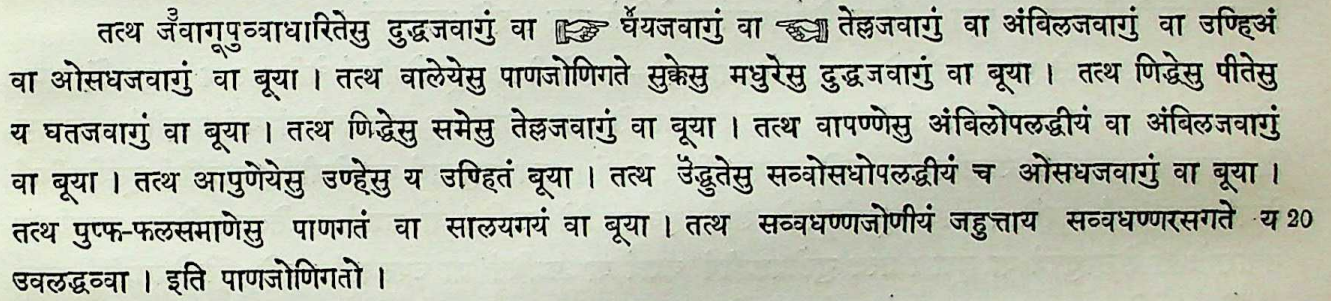 तत्थ जँ३वागूपुव्वाधारितेसु दुद्धजवागुं वा ☞ घँ४यजवागुं वा ☜ तेल्लजवागुं वा अंबिलजवागुं वा उण्हिअं
वा ओसधजवागुं वा बूया । तत्थ वालेयेसु पाणजोणिगते सुक्केसु मधुरेसु दुद्धजवागुं वा बूया । तत्थ णिद्धेसु पीतेसु
य घतजवागुं वा बूया । तत्थ णिद्धेसु समेसु तेल्लजवागुं वा बूया । तत्थ वापण्णेसु अंबिलोपलद्धीयं वा अंबिलजवागुं
वा बूया । तत्थ आपुणेयेसु उण्हेसु य उण्हितं बूया । तत्थ उँ५द्धुतेसु सव्वोसधोपलद्धीयं च ओसधजवागुं वा बूया ।
तत्थ पुप्फ-फलसमाणेसु पाणगतं वा सालयगयं वा बूया । तत्थ सव्वधण्णजोणीयं जहुत्ताय सव्वधण्णरसगते य 20
उवलद्धव्वा । इति पाणजोणिगतो ।